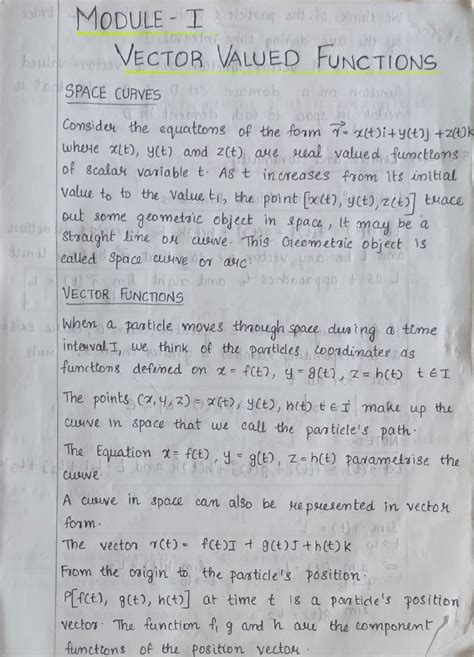 MODULE - I
VECTOR VALUED FUNCTIONS
SPACE CURVES
Consider the equations of the form r⃗ = x(t)i+y(t)j +z(t)k
where x(t), y(t) and z(t), are real valued functions
of scalar variable t. As t increases from its initial
value t₀ to the value t₁, the point [x(t), y(t), z(t)] trace
out some geometric object in space, It may be a
straight line or curve. This Geometric object is
called space curve or arc
VECTOR FUNCTIONS
When a particle moves through space during a time
interval I, we think of the particles coordinates as
functions defined on x = f(t), y = g(t), z = h(t) t ∈ I
The points (x, y, z) = x(t), y(t), h(t) t ∈ I make up the
curve in space that we call the particle's path.
The Equation x = f(t), y = g(t), z = h(t) parametrise the
curve.
A curve in space can also be represented in vector
form.
The vector r(t) = f(t)I + g(t)J + h(t)k
From the origin to the particle's position.
P[f(t), g(t), h(t)] at time t is a particle's position
vector. The function f, g and h are the component
functions of the position vector.